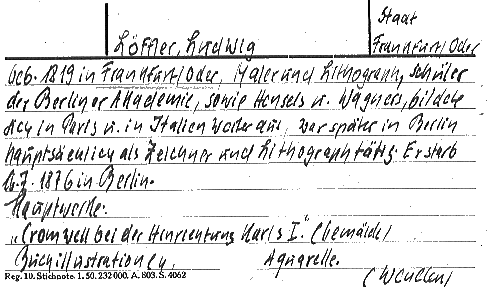 Staat
Löffler, Ludwig Frankfurt/Oder
geb. 1819 in Frankfurt/Oder, Maler und Lithograph, Schüler
der Berliner Akademie, sowie Hensels u. Wagners, bildete
sich in Paris u. in Italien weiter aus, war später in Berlin
hauptsächlich als Zeichner und Lithograph tätig. Er starb
7. 1876 in Berlin.
Hauptwerke:
"Cromwell bei der Hinrichtung Karls I." (Gemälde)
Buchillustrationen, Aquarelle.
Reg. 10. Stichnote. 1. 50. 232 000. A. 803. S. 4062